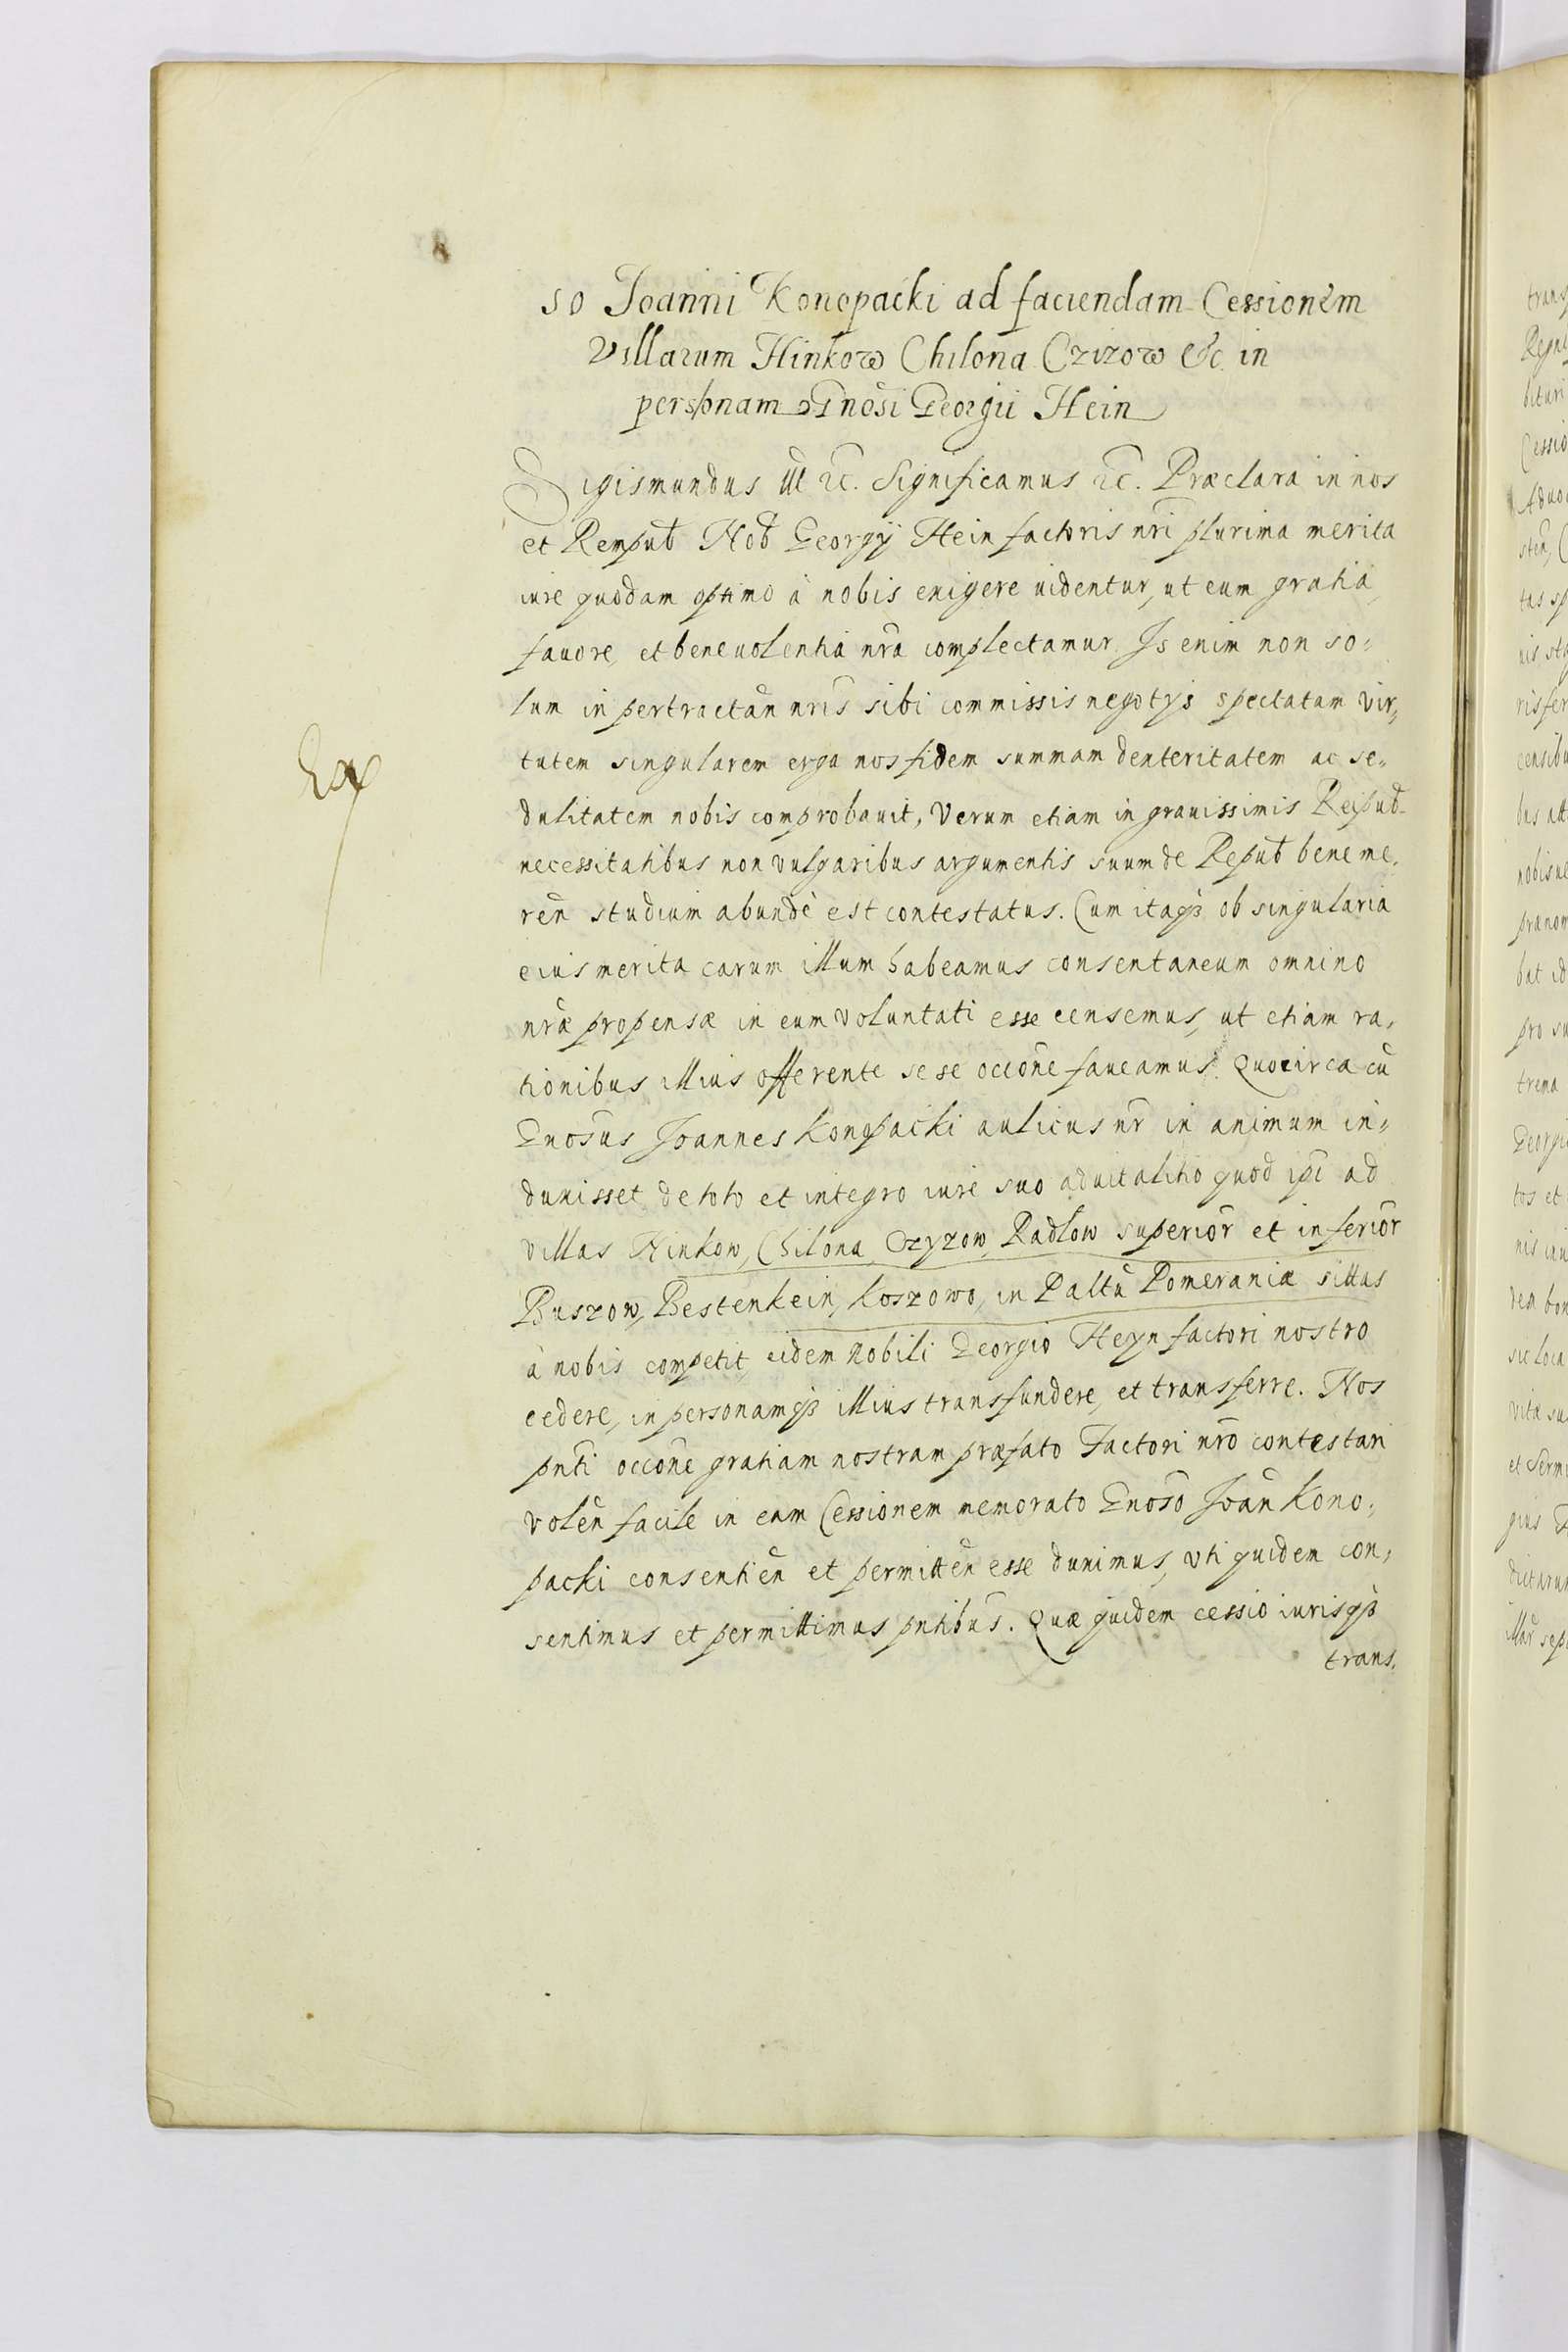 so Joanni Konopacki ad faciendam Cessionem
Villarum Hinkow Chilona Czirow &c. in
personam Gnosi Georgii Hein
Sigismundus III etc. Significamus etc. Præclara in nos
et Rempub Nob Georgÿ Hein factoris nri plurima merita
iure quodam optimo à nobis exigere uidentur, ut eum gratia,
fauore, et beneuolentia nra complectamur. Is enim non so=
lum in pertractan nris sibi commissis negotys spectatam vir,
tutem singularem erga nos fidem summam dexteritatem ac se=
dulitatem nobis comprobauit, Verum etiam in grauissimis Reipub
necessitatibus non vulgaribus argumentis suum de Repub bene me,
ren studium abundè est contestatus. Cum itaqȝ ob singularia
eius merita carum illum habeamus consentaneum omnino
nræ propensæ in eum voluntati esse censemus, ut etiam ra,
tionibus illius offerente sese occone faueamus. Quocirca cu
Gnosus Joannes Konopacki aulicus nr in animum in=
duxisset de toto et integro iure suo aduitalitio quod ipi ad
villas Hinkow, Chilona Czyzow, Radlow superior et inferior
Buszow, Bestenkein, Koszowo, in Paltu Pomeraniæ sittas
à nobis competit, eidem Nobili Georgio Heyn factori nostro
cedere, in personamqȝ illius transfundere, et transferre. Nos
pnti occone gratiam nostram præfato Factori nro contestari
volen facile in eam Cessionem memorato Gnoso Joan Kono,
packi consentien et permitten esse duximus, vti quidem con,
sentimus et permittimus pntibus. Quæ quidem cessio iurisqȝ
trans.